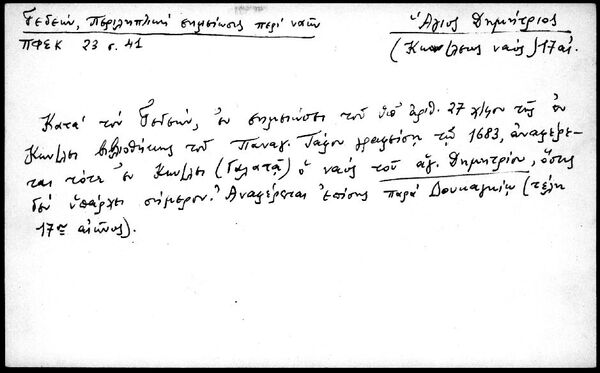 Γεδεών, Περιληπτική σημείωσις περί ναῶν
ΠΦΕΚ 23 σ. 41
Ἅγιος Δημήτριος
(Κων/λεως ναός) 17 αἰ.
Κατά τόν Γεδεών, ἐν σημειώσει τοῦ ὑπ' ἀριθ. 27 χ/φου τῆς ἐν
Κων/λει βιβλιοθήκης τοῦ Παναγ. Τάφου γραφείσῃ τῷ 1683, ἀναφέρε-
ται τότε ἐν Κων/λει (Γαλατᾷ) ὁ ναός τοῦ ἁγ. Δημητρίου, ὅστις
δέν ὑπάρχει σήμερον. Ἀναφέρεται ἐπίσης παρά Δουκαγκίῳ (τέλη
17ου αἰῶνος).